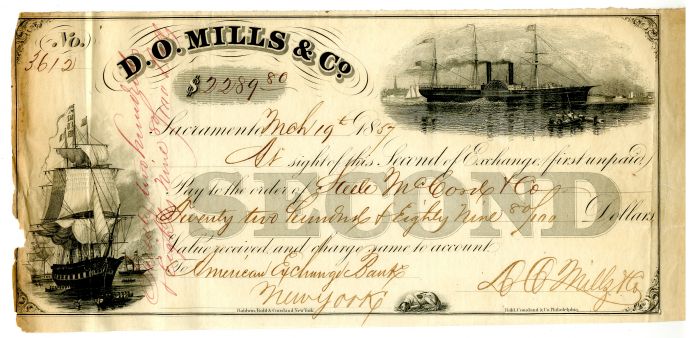 No.
3612
D. O. MILLS & Co.
$2289.80
Sacramento Mch 19th 1857
At sight of this Second of Exchange (first unpaid)
Pay to the order of Steele McCord & Co
SECOND
Twenty two hundred & Eighty Nine 80/100 Dollars,
Value received, and charge same to account
To American Exchange Bank
New York
D O Mills & Co
Baldwin, Bald & Cousland New York.
Bald, Cousland & Co. Philadelphia.